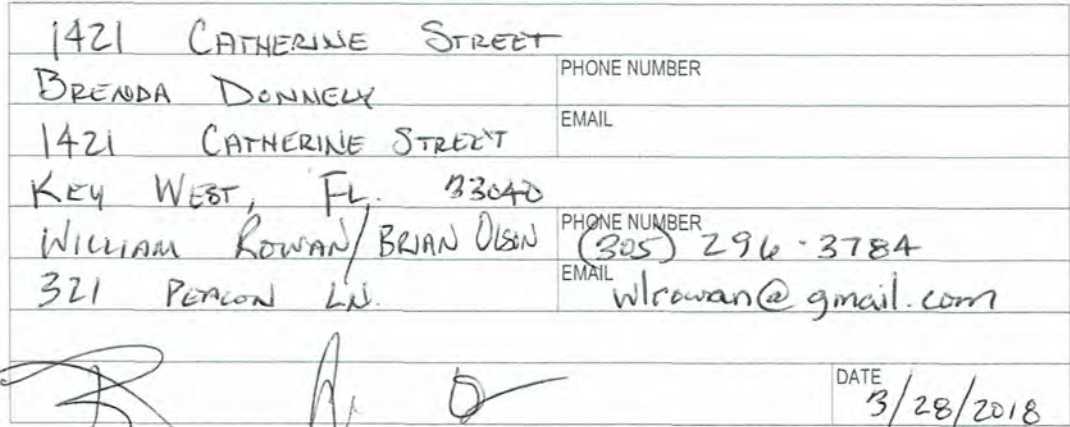 1421 CATHERINE STREET
BRENDA DONNELY
PHONE NUMBER
1421 CATHERINE STREET
EMAIL
KEY WEST, FL. 33040
WILLIAM ROWAN/BRIAN OLSON
PHONE NUMBER
(305) 296-3784
321 PEACON LN.
EMAIL
wlrowan@gmail.com
DATE
3/28/2018